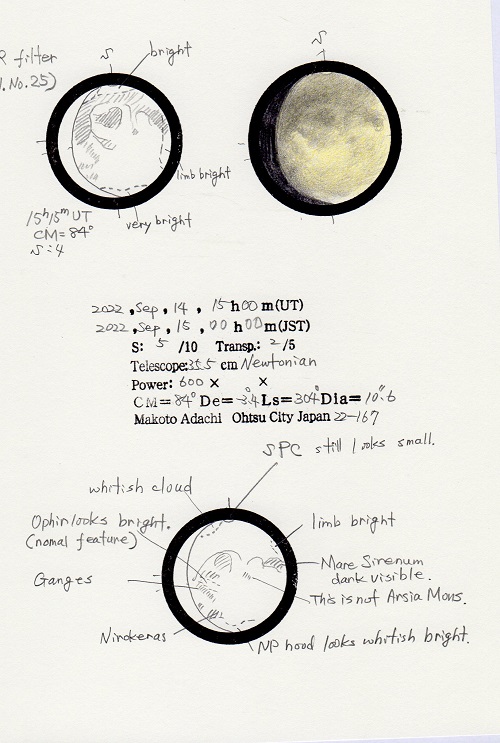 R filter
No.25)
S
bright
S
limb bright
very bright
15h15m UT
CM=84°
S:4
2022, Sep, 14, 15h00m(UT)
2022, Sep, 15, 00h00m(JST)
S: 5 /10 Transp.: 2 /5
Telescope:35.5 cm Newtonian
Power: 600 × ×
CM=84° De=-3.4° Ls=304° Dia=10".6
Makoto Adachi Ohtsu City Japan 22-167
SPC still looks small.
whitish cloud
Ophir looks bright.
(nomal feature)
limb bright
Mare Sirenum
dark visible.
Ganges
This is not Arsia Mons.
Nirokeras
NP hood looks whitish bright.